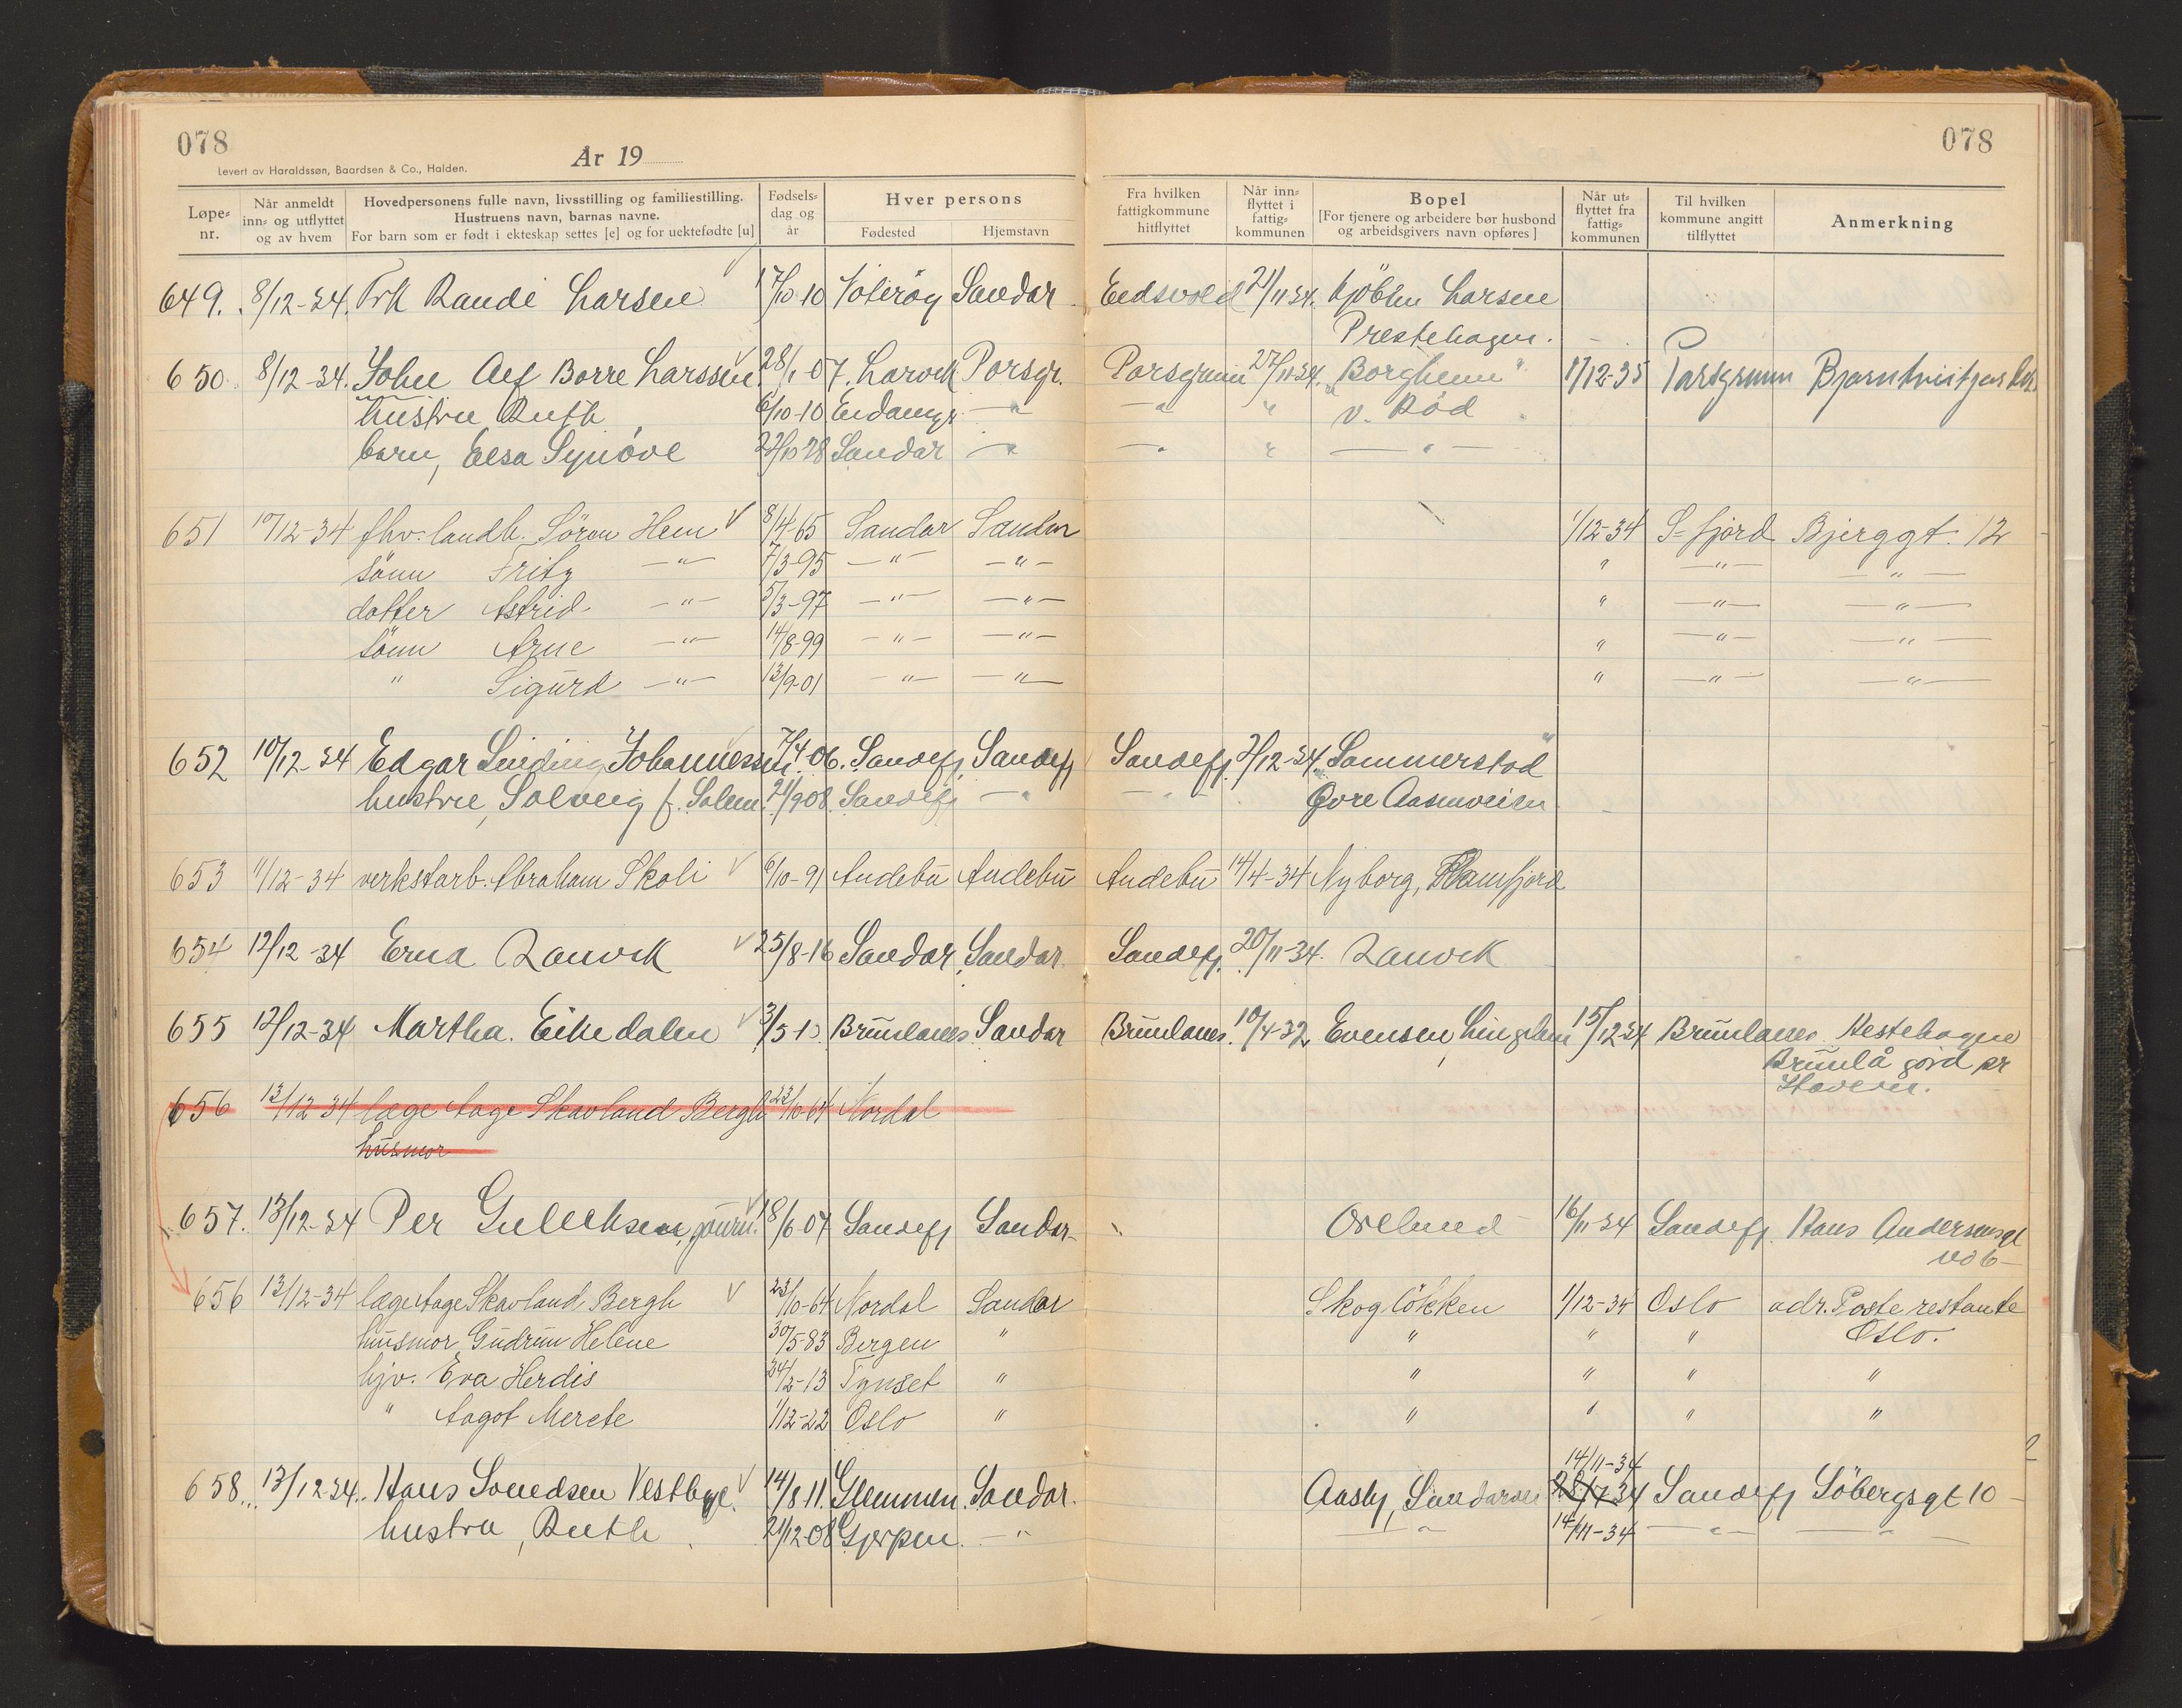 078
078
År 19
Levert av Haraldssøn, Baardsen & Co., Halden.
Løpe-nr. Når anmeldt inn- og utflyttet og av hvem Hovedpersonens fulle navn, livsstilling og familiestilling. Hustruens navn, barnas navne. For barn som er født i ekteskap settes [e] og for uektefødte [u] Fødsels-dag og år Hver persons Fødested Hjemstavn Fra hvilken fattigkommune hitflyttet Når inn-flyttet i fattig-kommunen Bopel [For tjenere og arbeidere bør husbond og arbeidsgivers navn opføres] Når ut-flyttet fra fattig-kommunen Til hvilken kommune angitt tilflyttet Anmerkning
649. 8/12-34. Frk Randi Larsen 17/10-10 Nøterøy Sandar Eidsvold 21/11-34. Larsen
Prestehagen.
650. 8/12-34. John Alf Borre Larssen 28/1-07. Larvik Porsgr. Porsgrunn 27/11-34. "Borgheim" 17/12-35 Porsgrunn
hustru Ruth 6/10-10 Eidanger -"- -"- " v. Rød
barn, Elsa Synøve 22/10 28 Sandar -"- -"- " -"-
651 10/12-34 fhv. landh. Sören Hem 8/4-65 Sandar Sandar 1/12-34 S-fjord Bjerggt. 12
sönn Fritz -"- 7/3-95 -"- -"- " -"- -"-
datter Astrid -"- 5/3-97 -"- -"- " -"- -"-
sönn Arne -"- 14/8-99 -"- -"- " -"- -"-
" Sigurd -"- 13/9-01 -"- -"- " -"- -"-
652 10/12-34 Edgar Sinding Johannessen 7/4-06. Sandefj. Sandefj Sandefj. 3/12-34. "Sommerstad"
hustru, Solveig f. Solem 21/9 08. Sandefj -"- -"- Øvre Aasenveien
653 11/12-34 verkstarb. Abraham Skoli 6/10-91 Andebu Andebu Andebu 14/4-34 Nyborg, Framfjord
654 12/12-34 Erna Ranvik 25/8-16 Sandar Sandar Sandefj. 20/11-34. Ranvik
655 12/12-34 Martha Eikedalen 3/5-13 Brunlanes Sandar Brunlanes. 10/4-32 Evensen, Lingelem 15/12-34 Brunlanes Hestehagen
Brunlå gård pr
Stavern.
656 13/12 34 læge Aage Skavland Bergh 23/10-64 Nordal
husmor
657. 13/12-34 Per Gulliksen, journ. 18/6-07 Sandefj Sandar Orelund 16/11-34 Sandefj. Hans Andersensgt
no 6
656 13/12-34 læge Aage Skavland Bergh 23/10-64 Nordal Sandar Skogløkken 1/12-34 Oslo adr. Poste restante
husmor Gudrun Helene 30/5-83 Bergen " " " " Oslo.
hjv. Eva Herdis 24/2-13 Tynset " " " " "
" Aagot Merete 1/12-22 Oslo " " " " "
14/11-34
658. 13/12-34. Hans Svendsen Vestbye. 14/8-11. Glemmen. Sandar. Aasly, Sandarveien Sandefj Søbergsgt 10
hustru, Ruth 21/12-08 Gjerpen -"- -"- 14/11-34 -"- -"-